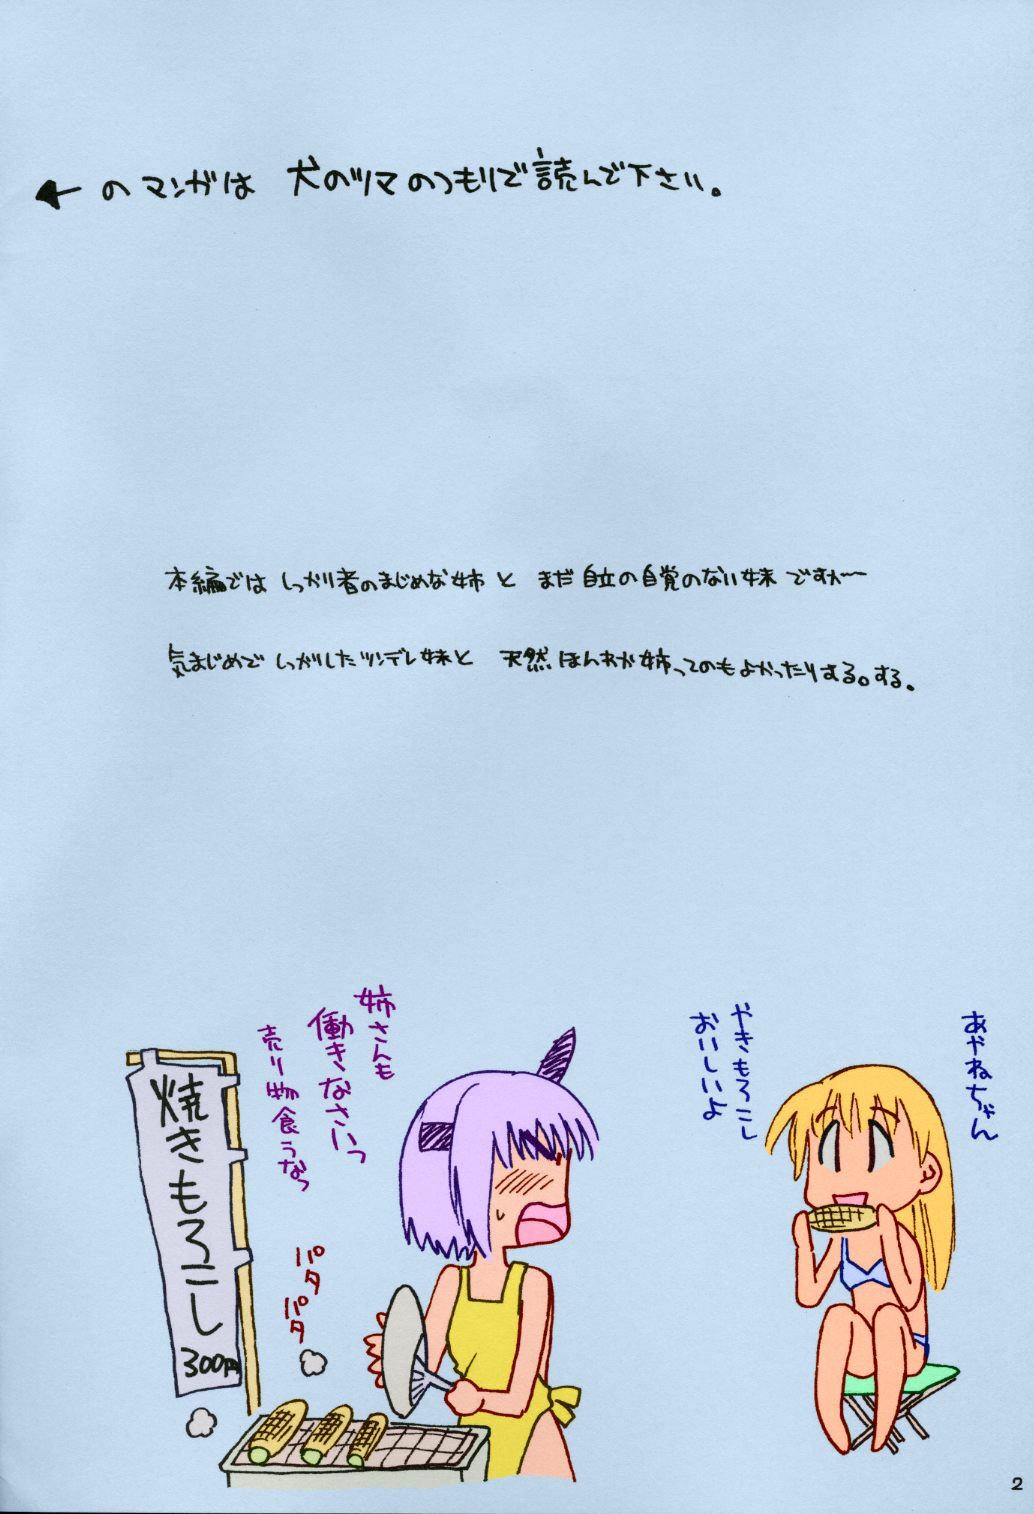 ←のマンガは 犬のツマのつもりで読んで下さい。
本編では しっかり者のまじめな姉と まだ自立の自覚のない妹 ですが〜
気まじめで しっかりしたツンデレ妹と 天然ほんわか姉ってのもよかったりする。する。
あやねちゃん
やきもろこし
おいしいよ
姉さんも
働きなさいっ
売り物食うなっ
パタ
パタ
焼きもろこし
300円
2